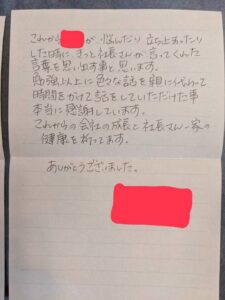 これから が、悩んだり 立ち止まったり
した時に、きっと社長さんが言ってくれた
言葉を思い出す事と思います。
勉強以上に色々な話を親に代わって
時間をかけて話をしていただけた事
本当に感謝しています。
これからの会社の成長と社長さん一家の
健康を祈ってます。
ありがとうございました。